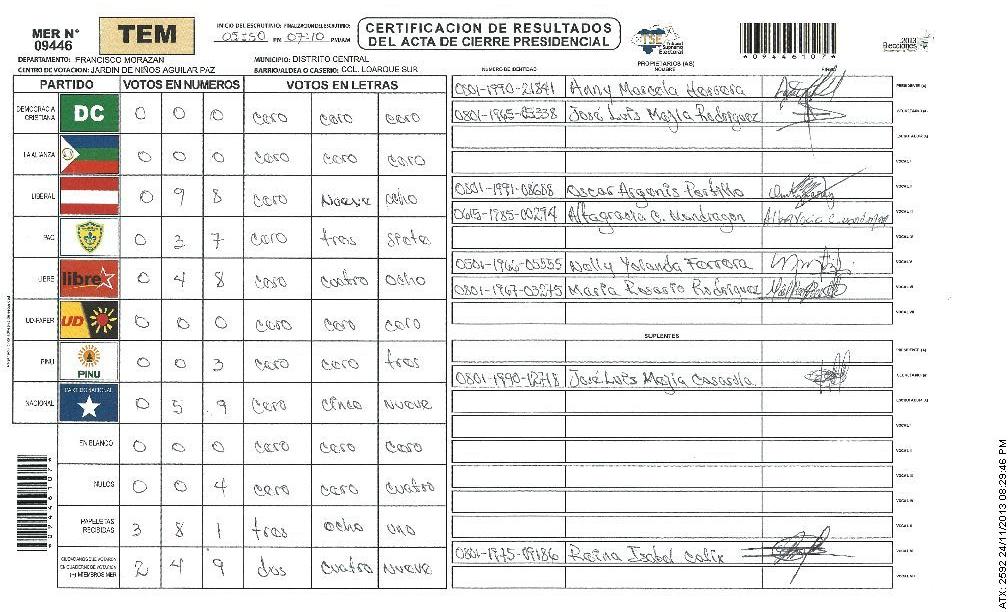 MER N° 09446
TEM
INICIO DEL ESCRUTINIO: FINALIZACION DEL ESCRUTINIO:
05:50 PM 07:10 PM/AM
CERTIFICACION DE RESULTADOS
DEL ACTA DE CIERRE PRESIDENCIAL
TSE Tribunal Supremo Electoral
2013 Elecciones
DEPARTAMENTO: FRANCISCO MORAZAN MUNICIPIO: DISTRITO CENTRAL
CENTRO DE VOTACION: JARDIN DE NIÑOS AGUILAR PAZ BARRIO/ALDEA O CASERIO: COL. LOARQUE SUR
PARTIDO VOTOS EN NUMEROS VOTOS EN LETRAS
DEMOCRACIA CRISTIANA DC 0 0 0 cero cero cero
LA ALIANZA 0 0 0 cero cero cero
LIBERAL 0 9 8 cero Nueve ocho
PAC 0 3 7 cero tres siete
LIBRE libre 0 4 8 cero cuatro ocho
UD-FAPER UD 0 0 0 cero cero cero
PINU PINU 0 0 3 cero cero tres
NACIONAL PARTIDO NACIONAL 0 5 9 cero cinco nueve
EN BLANCO 0 0 0 cero cero cero
NULOS 0 0 4 cero cero cuatro
PAPELETAS RECIBIDAS 3 8 1 tres ocho uno
CIUDADANOS QUE VOTARON EN CUADERNO DE VOTACION (+) MIEMBROS MER 2 4 9 dos cuatro nueve
PROPIETARIOS (AS)
NUMERO DE IDENTIDAD NOMBRE FIRMA
0801-1990-21841 Anny Marcela Herrera PRESIDENTE (A)
0801-1965-05338 José Luis Mejía Rodriguez SECRETARIO (A)
ESCRUTADOR (A)
VOCAL I
0801-1991-08688 Oscar Argenis Portillo VOCAL II
0615-1985-00274 Altagracia C. Mondragon VOCAL III
VOCAL IV
0501-1966-05555 Nolly Yolanda Ferrera VOCAL V
0801-1967-03275 Maria Rosario Rodriguez VOCAL VI
VOCAL VII
SUPLENTES
PRESIDENTE (A)
0801-1990-12718 José Luis Mejia Casasola SECRETARIO (A)
ESCRUTADOR (A)
VOCAL I
VOCAL II
VOCAL III
VOCAL IV
VOCAL V
0801-1975-09186 Reina Isabel Calix VOCAL VI
VOCAL VII
*09446107*
*09446107*
ATX: 2592 24/11/2013 08:29:46 PM